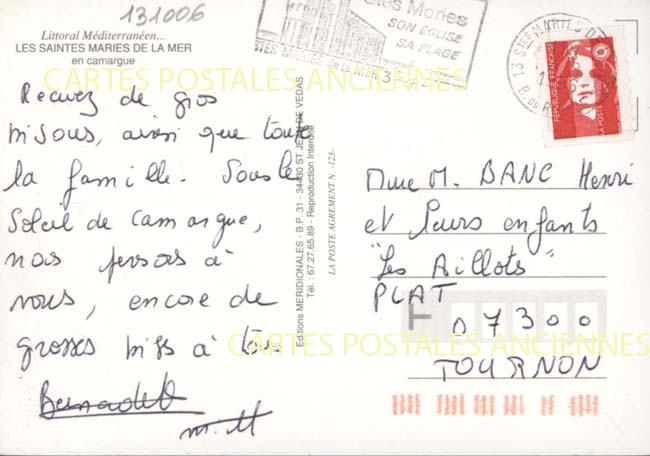 131006
Littoral Méditerranéen...
LES SAINTES MARIES DE LA MER
en camargue
Recevez de gros
bisous, ainsi que toute
la famille. Sous le
Soleil de Camargue,
nous pensons à
vous, encore de
grosses bises à tous
Bernadette
Editions MERIDIONALES - B.P. 31 - 34430 ST JEAN DE VEDAS
Tél. : 67.27.65.89 - Reproduction Interdite
LA POSTE AGREMENT N. -123-
Maries
SON EGLISE
SA PLAGE
STES MARIES de la MER
13 STES MARIES D
B. DU R
REPUBLIQUE FRANCAISE
LA POSTE
Mme M. BANC Henri
et Leurs enfants
"Les Aillots"
PLAT
07300
TOURNON
CARTES POSTALES ANCIENNES
CARTES POSTALES ANCIENNES